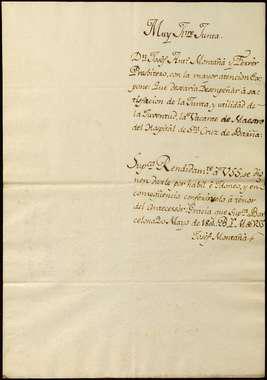 Muy Iltre Junta.
Dn Josef Anto Montañá y Ferrér
Presbitero, con la mayor atencion Ex-
pone: Que desearia desempeñar à sa-
tisfaccion de la Junta, y utilidad de
la Juventud, la Vacante de Maestro
del Hospital de Sta Cruz de Barna:
Supca Rendidamte à VSS. se dig-
nen darle por habil è Idoneo, y en
consequencia conferirsela à tenor
del Antecesor: Gracia que Supca Bar-
celona Mayo de B. L. M. à VSS
Josef Montañá